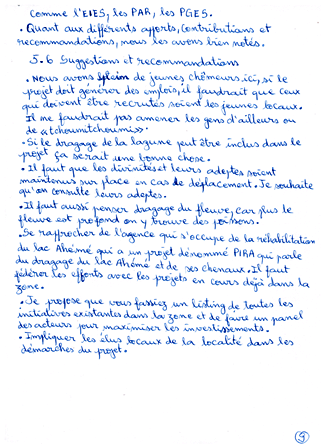 comme l'EIES, les PAR, les PGES.
. Quant aux différents apports, contributions et
recommandations, nous les avons bien notés.
5.6 Suggestions et recommandations
. Nous avons plein de jeunes chômeurs ici, si le
projet doit générer des emplois, il faudrait que ceux
qui doivent être recrutés soient les jeunes locaux.
Il ne faudrait pas amener les gens d'ailleurs ou
de « tchoumitchoumi ».
. Si le dragage de la lagune peut être inclus dans le
projet ça serait une bonne chose.
. Il faut que les divinités et leurs adeptes soient
maintenus sur place en cas de déplacement. Je souhaite
qu'on consulte leurs adeptes.
. Il faut aussi penser dragage du fleuve, car plus le
fleuve est profond on y trouve des poissons.
. Se rapprocher de l'agence qui s'occupe de la réhabilitation
du lac Ahémé qui a un projet dénommé PIRA qui parle
du dragage du lac Ahémé et de ses chenaux. Il faut
fédérer les efforts avec les projets en cours déjà dans la
zone.
. Je propose que vous fassiez un listing de toutes les
initiatives existantes dans la zone et de faire un panel
des acteurs pour maximiser les investissements.
. Impliquer les élus locaux de la localité dans les
démarches du projet.
9